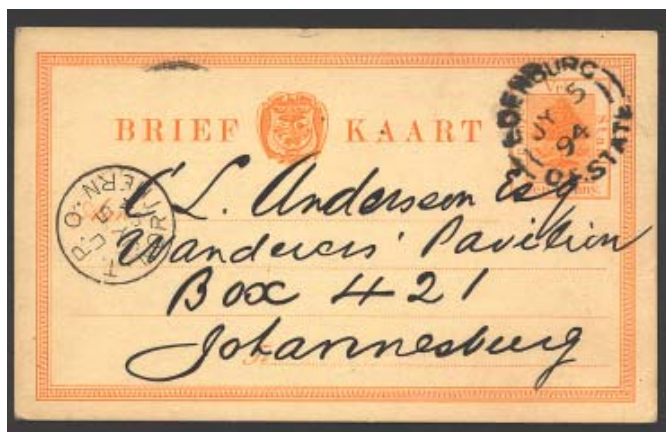 BRIEF KAART
EDENBURG
JY 5
94
O.F. STATE
C L. Andersson Esq
Wanderers' Pavilion
Box 421
Johannesburg
T.P.O.